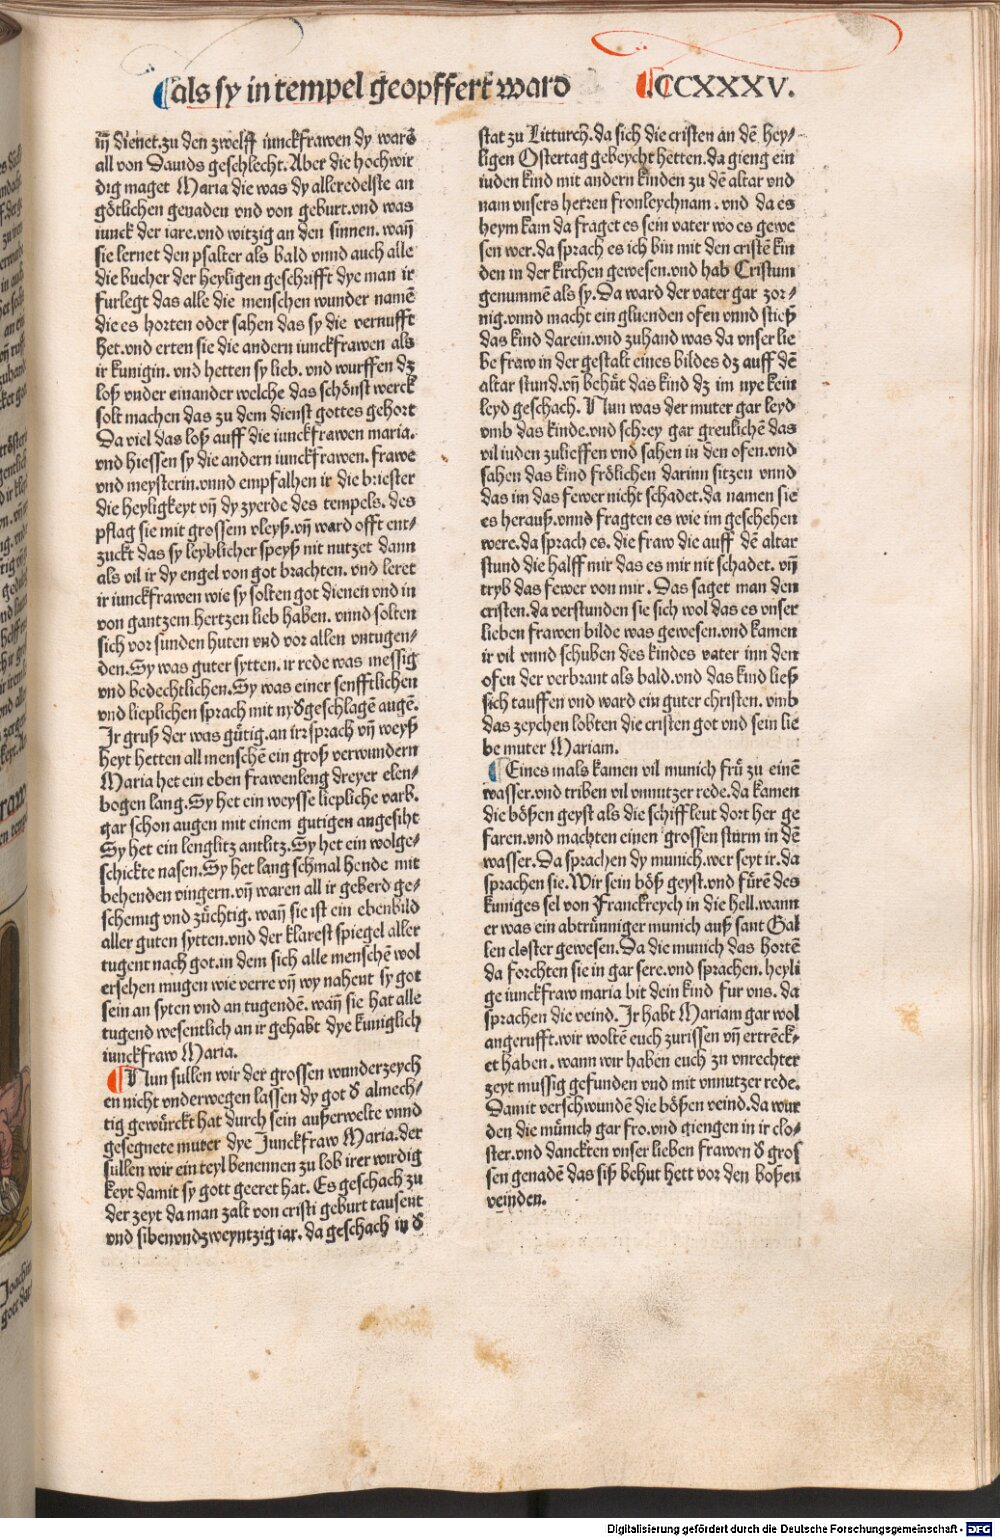 als sy in tempel geopffert ward
CCXXXV.
vñ dienet. zu den zwelff iunckfrawen dy warē
all von Dauids geschlecht. Aber die hochwir
dig maget Maria die was dy alleredelste an
götlichen genaden vnd von geburt. vnd was
iunck der iare. vnd witzig an den sinnen. wañ
sie lernet den psalter als bald vnnd auch alle
die bucher der heyligen geschrifft dye man ir
furlegt das alle die menschen wunder namē
die es horten oder sahen das sy die vernufft
het. vnd erten sie die andern iunckfrawen als
ir kunigin. vnd hetten sy lieb. vnd wurffen dz
loß vnder einander welche das schönst werck
solt machen das zu dem dienst gottes gehort
Da viel das loß auff die iunckfrawen maria.
vnd hiessen sy die andern iunckfrawen. frawe
vnd meysterin. vnnd empfalhen ir die briester
die heyligkeyt vñ dy zyerde des tempels. des
pflag sie mit grossem vleyß. vñ ward offt ent-
zuckt das sy leyblicher speyß nit nutzet dann
als vil ir dy engel von got brachten. vnd leret
ir iunckfrawen wie sy solten got dienen vnd in
von gantzem hertzen lieb haben. vnnd solten
sich vor sunden huten vnd vor allen vntugen-
den. Sy was guter sytten. ir rede was messig
vnd bedechtlichen. Sy was einer senfftlichen
vnd lieplichen sprach mit nyd̄geschlagē augē.
Ir gruß der was gütig. an irr sprach vñ weyß
heyt hetten all menschē ein groß verwundern
Maria het ein eben frawenleng dreyer elen-
bogen lang. Sy het ein weysse liepliche varb.
gar schon augen mit einem gutigen angesiht
Sy het ein lenglitz antlitz. Sy het ein wolge-
schickte nasen. Sy het lang schmal hende mit
behenden vingern. vñ waren all ir geberd ge-
schemig vnd züchtig. wañ sie ist ein ebenbild
aller guten sytten. vnd der klarest spiegel aller
tugent nach got. in dem sich alle menschē wol
ersehen mugen wie verre vñ wy nahent sy got
sein an syten vnd an tugendē. wañ sie hat alle
tugend wesentlich an ir gehabt dye kuniglich
iunckfraw Maria.
Nun sullen wir der grossen wunderzeych
en nicht vnderwegen lassen dy got d̄ almech-
tig gewürckt hat durch sein außerwelte vnnd
gesegnete muter dye Junckfraw Maria. der
sullen wir ein teyl benennen zu lob irer wirdig
keyt damit sy gott geeret hat. Es geschach zu
der zeyt da man zalt von cristi geburt tausent
vnd sibenvndzweyntzig iar. da geschach in d̄
stat zu Litturch. da sich die cristen an dē hey-
ligen Ostertag gebeycht hetten. da gieng ein
iuden kind mit andern kinden zu dē altar vnd
nam vnsers herren fronleychnam. vnd da es
heym kam da fraget es sein vater wo es gewe
sen wer. da sprach es ich bin mit den cristē kin
den in der kirchen gewesen. vnd hab Cristum
genummē als sy. Da ward der vater gar zor-
nig. vnnd macht ein gluenden ofen vnnd stieß
das kind darein. vnd zuhand was da vnser lie
be fraw in der gestalt eines bildes dz auff dē
altar stund. vñ behüt das kind dz im nye kein
leyd geschach. Nun was der muter gar leyd
vmb das kinde. vnd schrey gar greulichē das
vil iuden zulieffen vnd sahen in den ofen. vnd
sahen das kind frölichen darinn sitzen vnnd
das im das fewer nicht schadet. da namen sie
es herauß. vnnd fragten es wie im geschehen
were. da sprach es. die fraw die auff dē altar
stund die halff mir das es mir nit schadet. vñ
tryb das fewer von mir. Das saget man den
cristen. da verstunden sie sich wol das es vnser
lieben frawen bilde was gewesen. vnd kamen
ir vil vnnd schuben des kindes vater inn den
ofen der verbrant als bald. vnd das kind ließ
sich tauffen vnd ward ein guter christen. vmb
das zeychen lobten die cristen got vnd sein lie
be muter Mariam.
Eines mals kamen vil munich frü zu einē
wasser. vnd triben vil vnnutzer rede. da kamen
die bößen geyst als die schiffleut dort her ge
faren. vnd machten einen grossen sturm in dē
wasser. Da sprachen dy munich. wer seyt ir. da
sprachen sie. Wir sein böß geyst. vnd fürē des
kuniges sel von Franckreych in die hell. wann
er was ein abtrünniger munich auß sant Gal
len closter gewesen. Da die munich das hortē
da forchten sie in gar sere. vnd sprachen. heyli
ge iunckfraw maria bit dein kind fur vns. da
sprachen die veind. Ir habt Mariam gar wol
angerufft. wir woltē euch zurissen vñ ertrēck-
et haben. wann wir haben euch zu vnrechter
zeyt mussig gefunden vnd mit vnnutzer rede.
Damit verschwundē die bößen veind. da wur
den die münich gar fro. vnd giengen in ir clo-
ster. vnd danckten vnser lieben frawen d̄ gros
sen genadē das siß behut hett vor den boßen
veinden.
Digitalisierung gefördert durch die Deutsche Forschungsgemeinschaft - DFG